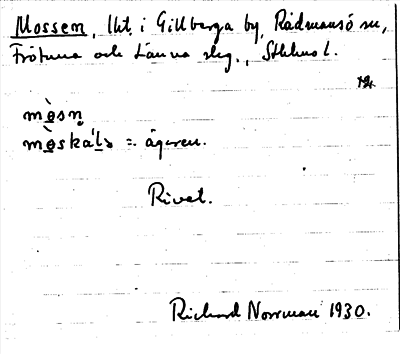 Mossem, lht. i Gillberga by, Rådmansö sn,
Frötuna och Länna slg., Sthlms l.
mòsn̥
mòskáḷn = ägaren.
Rivet.
Richard Norrman 1930.